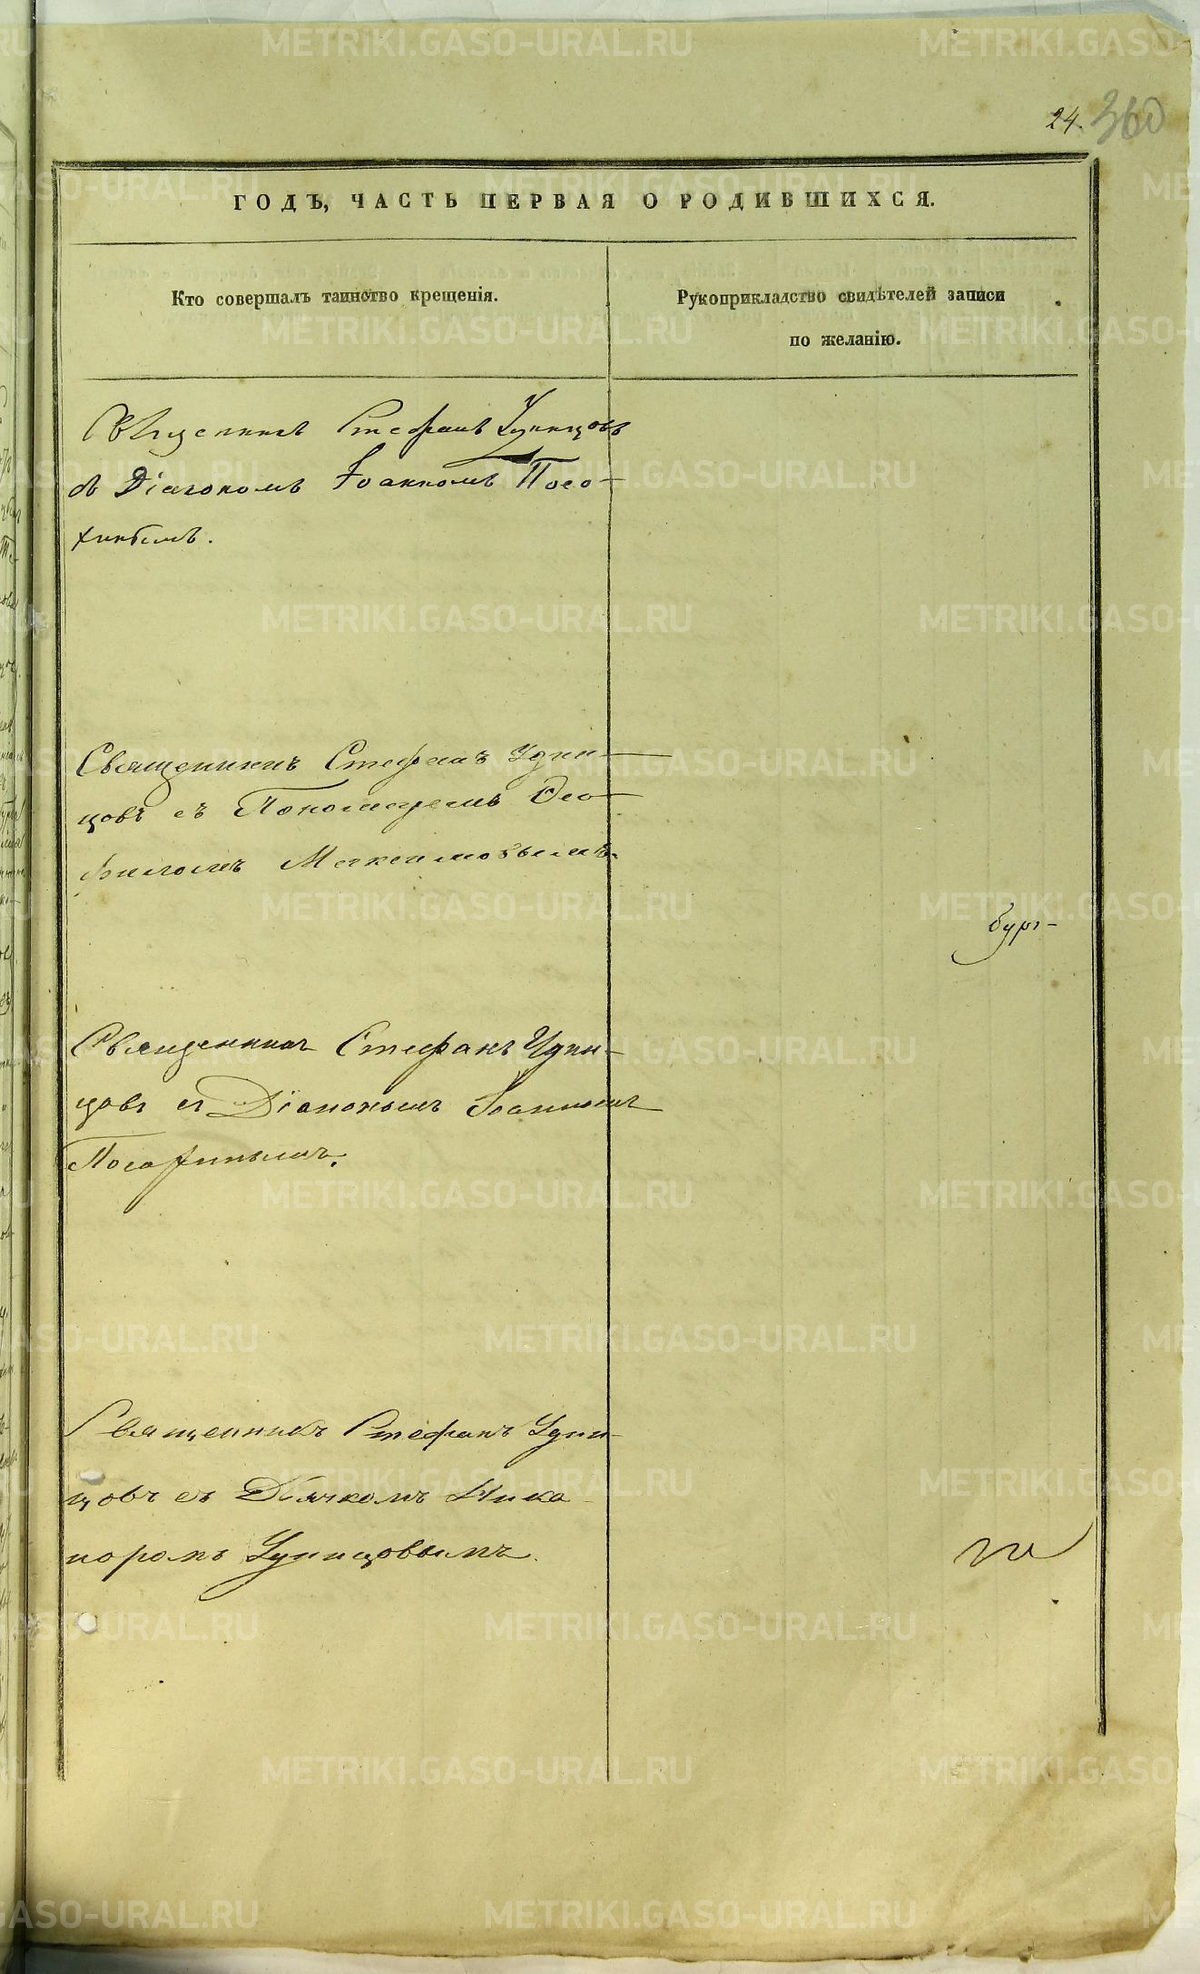 24. 360
ГОДЪ, ЧАСТЬ ПЕРВАЯ О РОДИВШИХСЯ.
Кто совершалъ таинство крещенія.
Рукоприкладство свидѣтелей записи
по желанію.
Священникъ Стефанъ Удинцовъ
съ Діакономъ Іоанномъ Посо-
хинымъ.
Священникъ Стефанъ Удин-
цовъ съ Пономаремъ Ѳео-
филомъ Максимовымъ.
бург-
Священникъ Стефанъ Удин-
цовъ съ Діакономъ Іоанномъ
Посохинымъ.
Священникъ Стефанъ Удин-
цовъ съ Дьячкомъ Ника-
норомъ Удинцовымъ.
METRIKI.GASO-URAL.RU